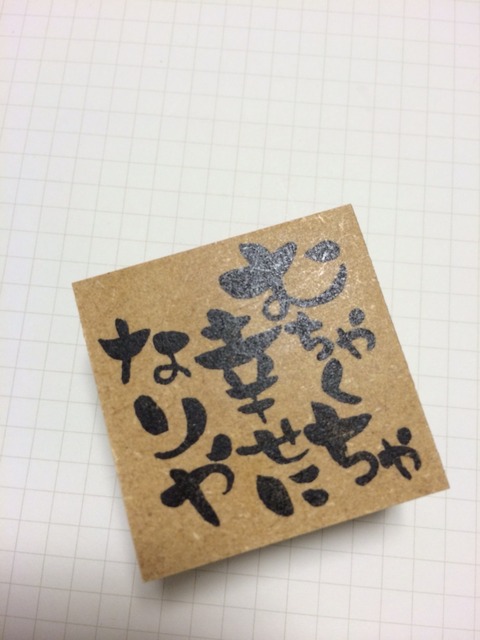 むちゃくちゃ
幸せに
なりや